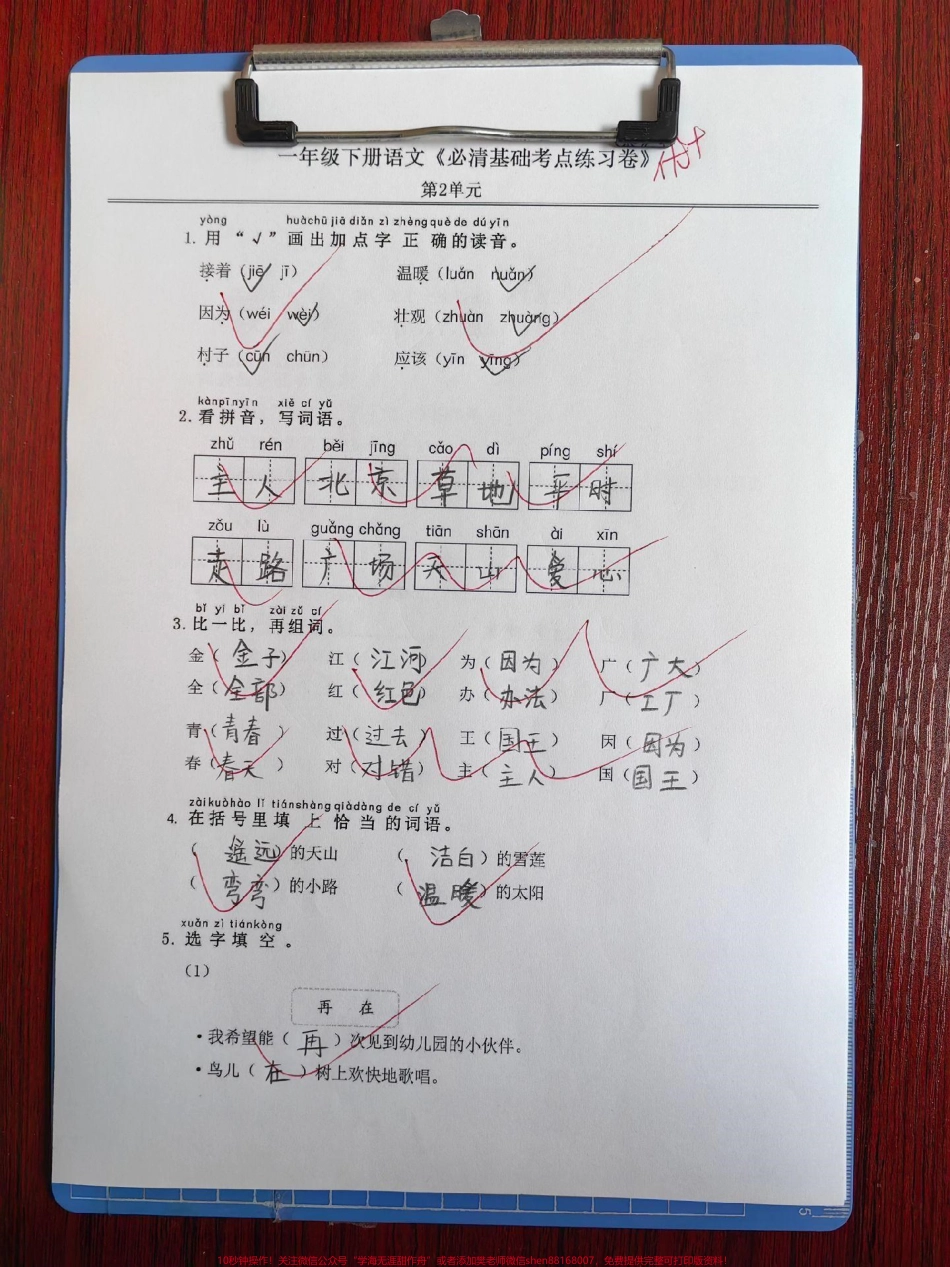 一年级下册语文《必清基础考点练习卷》
第2单元
yòng huàchū jiā diǎn zì zhèngquè de dú yīn
1. 用“√”画出加点字正确的读音。
接着（jiē jī） 温暖（luǎn nuǎn）
因为（wéi wèi） 壮观（zhuàn zhuàng）
村子（cūn chūn） 应该（yīn yīng）
kànpīnyīn xiě cí yǔ
2. 看拼音，写词语。
zhǔ rén běi jīng cǎo dì píng shí
主人 北京 草地 平时
zǒu lù guǎng chǎng tiān shān ài xīn
走路 广场 天山 爱心
bǐ yi bǐ zài zǔ cí
3. 比一比，再组词。
金（金子） 江（江河） 为（因为） 广（广大）
全（全部） 红（红色） 办（办法） 厂（工厂）
青（青春） 过（过去） 王（国王） 因（因为）
春（春天） 对（对错） 主（主人） 国（国王）
zài kuòhào lǐ tiánshàng qiàdàng de cí yǔ
4. 在括号里填上恰当的词语。
（遥远）的天山 （洁白）的雪莲
（弯弯）的小路 （温暖）的太阳
xuǎn zì tiánkòng
5. 选字填空。
（1）
再 在
·我希望能（再）次见到幼儿园的小伙伴。
·鸟儿（在）树上欢快地歌唱。
5
10秒钟操作！关注微信公众号“学海无涯甜作舟”或者添加樊老师微信shen88168007，免费提供完整可打印版资料！